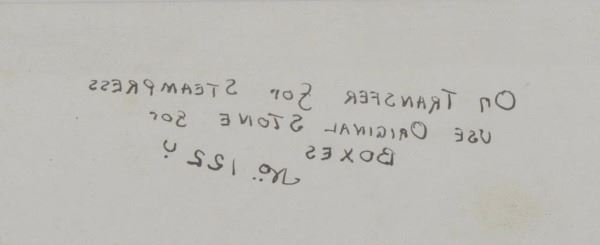 On TRANSFER For STEAMPRESS
USE ORIGINAL STONE For
BOXES
No. 122